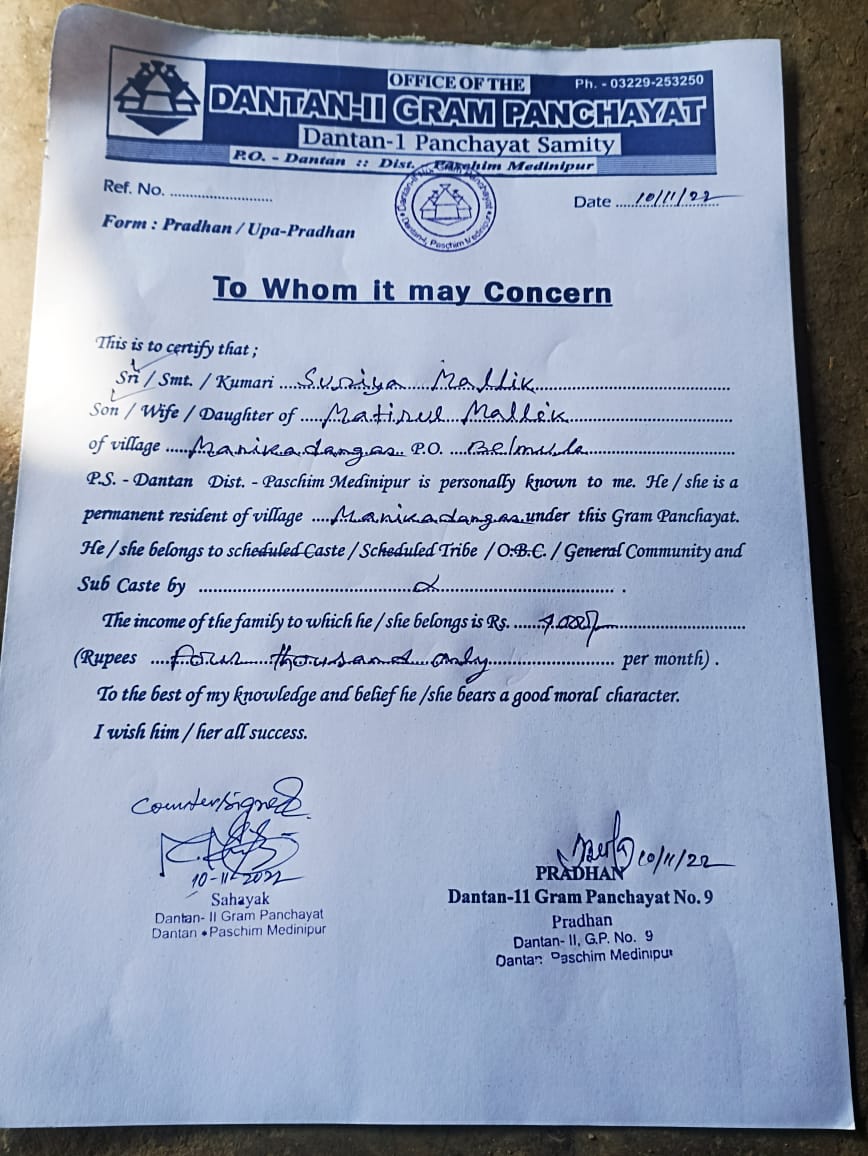 OFFICE OF THE
Ph. - 03229-253250
DANTAN-II GRAM PANCHAYAT
Dantan-1 Panchayat Samity
P.O. - Dantan :: Dist. - Paschim Medinipur
Ref. No. ..........................
Date ....10/11/22....
Dantan-II No. Gram Panchayat
Dantan-I, Paschim Medinipur
Form : Pradhan / Upa-Pradhan
To Whom it may Concern
This is to certify that ;
Sri / Smt. / Kumari ....Suriya Mallik....
Son / Wife / Daughter of ....Matirul Mallik....
of village ....Manikadangas.. P.O. ....Belmula....
P.S. - Dantan Dist. - Paschim Medinipur is personally known to me. He / she is a
permanent resident of village ....Manikadangas under this Gram Panchayat.
He / she belongs to scheduled Caste / Scheduled Tribe / O.B.C. / General Community and
Sub Caste by ........................ .
The income of the family to which he / she belongs is Rs. ....4.000/-....
(Rupees ....four thousand only.... per month) .
To the best of my knowledge and belief he /she bears a good moral character.
I wish him / her all success.
Countersigned
10-11-2022
10/11/22
Sahayak
PRADHAN
Dantan- II Gram Panchayat
Dantan-11 Gram Panchayat No. 9
Dantan • Paschim Medinipur
Pradhan
Dantan- II, G.P. No. 9
Dantan Paschim Medinipur